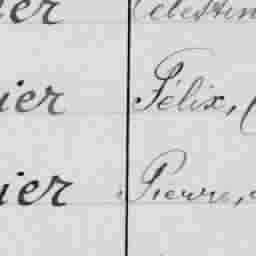 ier Célestin
ier Félix, (
ier Pierre,